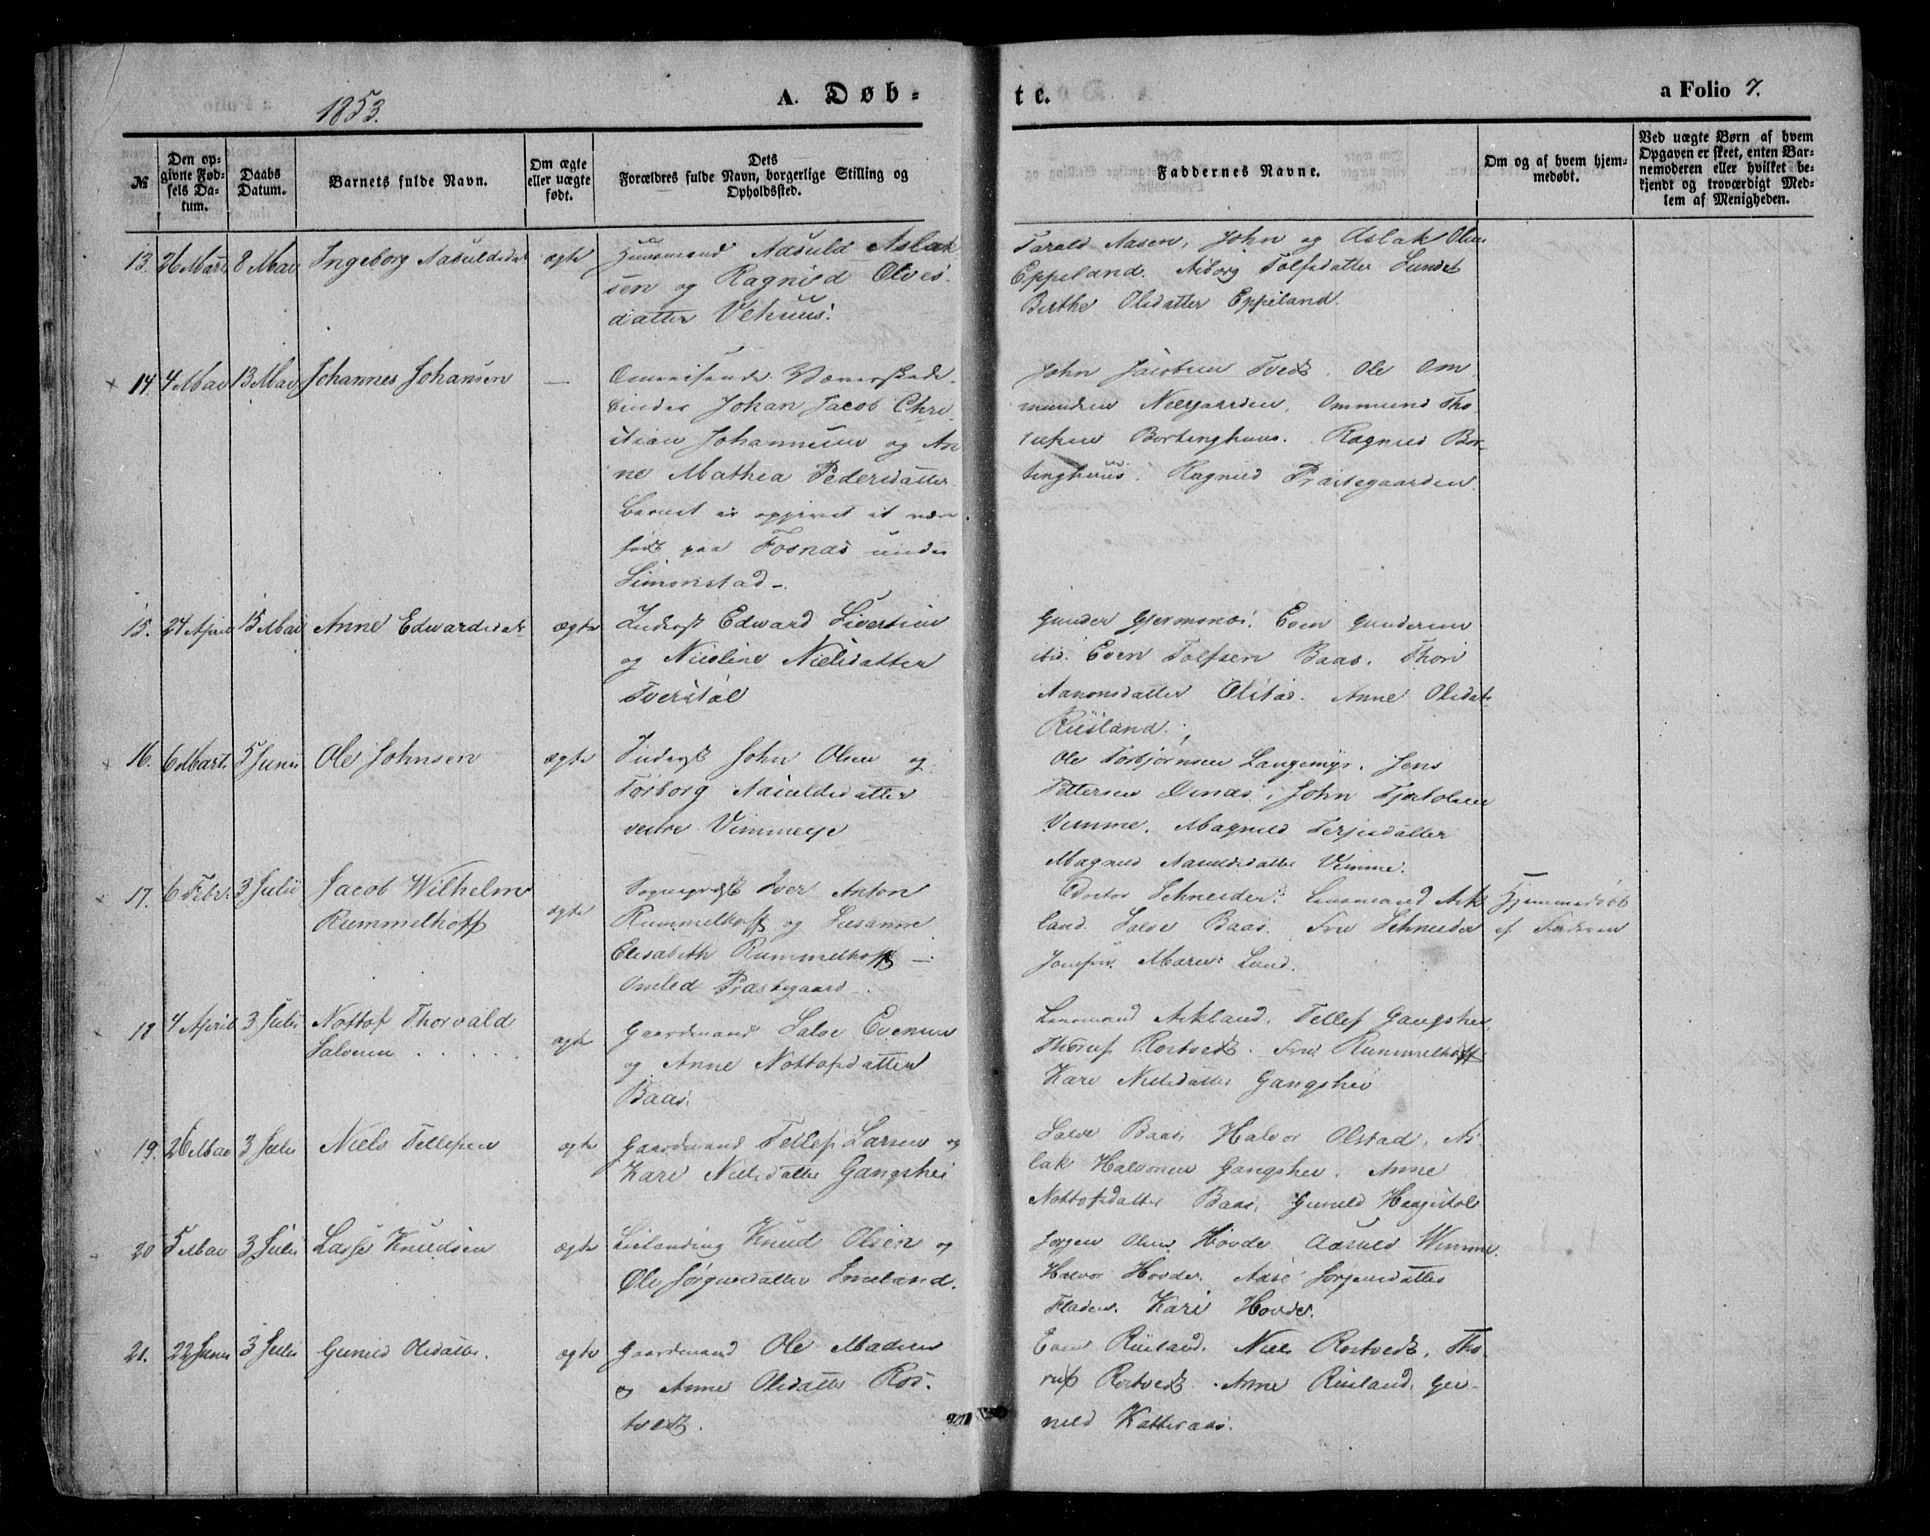 1853.
A. Døb-
te.
a Folio 7.
№
Den op-
givne Fød-
sels Da-
tum.
Daabs
Datum.
Barnets fulde Navn.
Om ægte
eller uægte
født.
Dets
Forældres fulde Navn, borgerlige Stilling og
Opholdssted.
Faddernes Navne.
Om og af hvem hjem-
medøbt.
Ved uægte Børn af hvem
Opgaven er skeet, enten Bar-
nemoderen eller hvilket be-
kjendt og troværdigt Med-
lem af Menigheden.
13. 26 Marts 8 Mai Ingeborg Aasuldsdat ægte Huusmand Aasuld Aslak
sen og Ragnild Olves
datter Vehuus.
Tarald Aasen, John og Aslak Olsen
Eppeland. Aiborg Tolfsdatter Lundet
Birthe Olsdatter Eppeland.
14. 4 Mai 13 Mai Johannes Johansen —
Omreisende
Johan Jacob Chri
stian Johannesen og An
ne Mathea Pedersdatter
Barnet er opgivet at være
født paa Fosnæs under
Simonstad —
John Jacobsen Tvedt. Ole Om
mundsen Næsgaarden, Ommund Tho
Bortinghuus. Ragnild Bor-
tinghuus. Ragnild Præstegaarden
15. 24 April 15 Mai Anne Edwardsdat ægte Inderst Edward Sivertsen
og Nicoline Nielsdatter
Tverstøl
Gunder Gjermonæs. Even Gundersen
ibid. Even Tolfsen Baas. Thore
Aanonsdatter Olstad. Anne Olsdat
Riisland.
16. 6 Marts 5 Juni Ole Johnsen ægte Inderst John Olsen og
Torborg Aasuldsdatter
vestre Vimmeye
Ole Torbjørnsen Langemyr. Jens
Pettersen Dynæs, John Tjostolsen
Vimme. Magnild Terjesdatter
Magnild Aasuldsdatter Vimme.
17. 6 Febr. 3 Julii Jacob Wilhelm
Rummelhoff
ægte
Sognepræst Iver Anton
Rummelhoff og Susanne
Elisabeth Rummelhoff —
Omlid Præstegaard —
Doctor Schneider. Lensmand Ask
land. Salve Baas. Fru Schneider
Jomfru Maren Lund.
Hjemmedøbt
af Faderen
18 4 April 3 Julii Nottof Thorvald
Salvesen . . . . .
ægte
Gaardmand Salve Evensen
og Anne Nottofsdatter
Baas.
Lensmand Askland. Tellef Gangshei
Thoruf Rostvedt. Fru Rummelhoff
Kari Nielsdatter Gangshei
19. 26 Mai 3 Julii Niels Tellefsen ægte Gaardmand Tellef Larsen og
Kari Nielsdatter Gangshei
Salve Baas, Halvor Olstad, As
lak Halvorsen Gangshei. Anne
Nottofsdatter Baas, Gunild
20 5 Mai 3 Julii Lasse Knudsen ægte Knud Olsen og
Jørgensdatter Smeland.
Jørgen Olsen Hovde Aasuld Wimme.
Halvor Hovde. Aase Jørgensdatter
Fladen. Kari Hovde.
21. 22 Juni 3 Julii Gunild Olsdatter. ægte Gaardmand Ole Madsen
og Anne Olsdatter Ros-
tvedt.
Even Riisland. Niels Rostvedt. Tho-
ruf Rostvedt. Anne Riisland. Gu-
nild Katteraas.